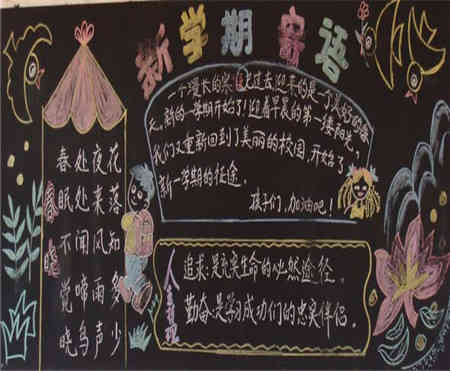 新学期寄语
一个漫长的寒假已过去,迎来的是一个美好的春
天。新的一学期开始了!迎着早晨的第一缕阳光,
我们又重新回到了美丽的校园,开始了
新一学期的征途。
孩子们,加油吧!
春晓
春眠不觉晓
处处闻啼鸟
夜来风雨声
花落知多少
人生
追求:是充实生命的必然途径。
勤奋:是学习成功们的忠实伴侣。